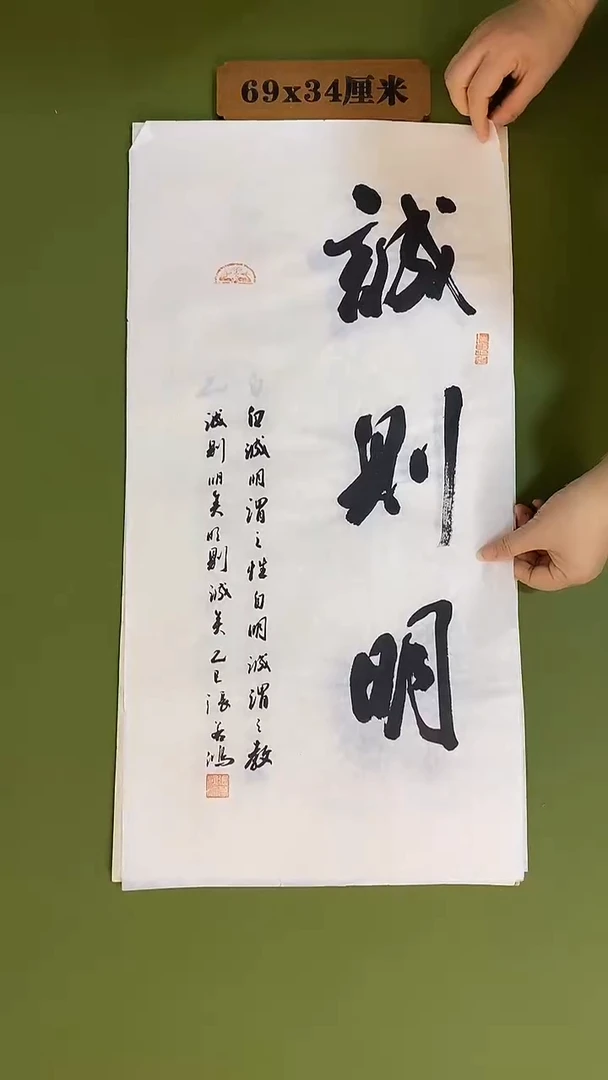 69x34厘米
誠則明
自誠明謂之性自明誠謂之教
誠則明矣明則誠矣乙巳張若鴻